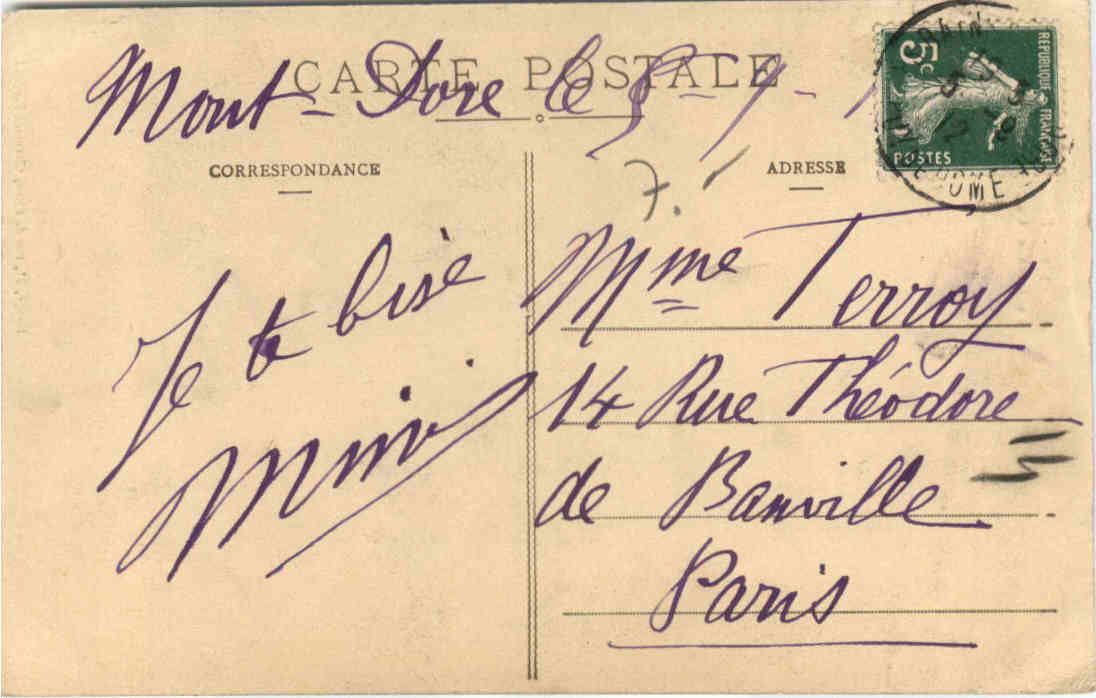 CARTE POSTALE
Mont-Dore le
CORRESPONDANCE
ADRESSE
5c
REPUBLIQUE FRANCAISE
POSTES
7.
Je te bise
Mimi
Mme Terroy
14 Rue Théodore
de Banville
Paris